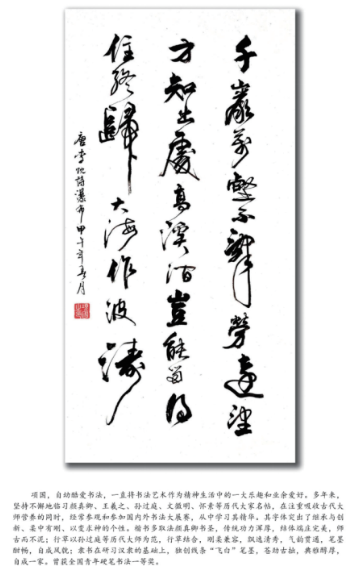 千巖萬壑不辭勞遠望
方知出處高溪澗豈能留得
住終歸大海作波濤
唐李忱詩瀑布甲午年春月
项国，自幼酷爱书法，一直将书法艺术作为精神生活中的一大乐趣和业余爱好。多年来，
坚持不懈地临习颜真卿、王羲之、孙过庭、文徵明、怀素等历代大家名帖，在注重吸收古代大
师营养的同时，经常参观和参加国内外书法大展赛，从中学习其精华。其字体突出了继承与创
新、柔中有刚、以变求神的个性。楷书多取法颜真卿书圣，传统功力浑厚，结体端庄完美，师
古而不泥；行草以孙过庭等历代大师为范，行草结合，刚柔兼容，飘逸清秀，气韵贯通，笔墨
酣畅，自成风貌；隶书在研习汉隶的基础上，独创残条“飞白”笔墨，苍劲古拙，典雅醇厚，
自成一家。曾获全国青年硬笔书法一等奖。